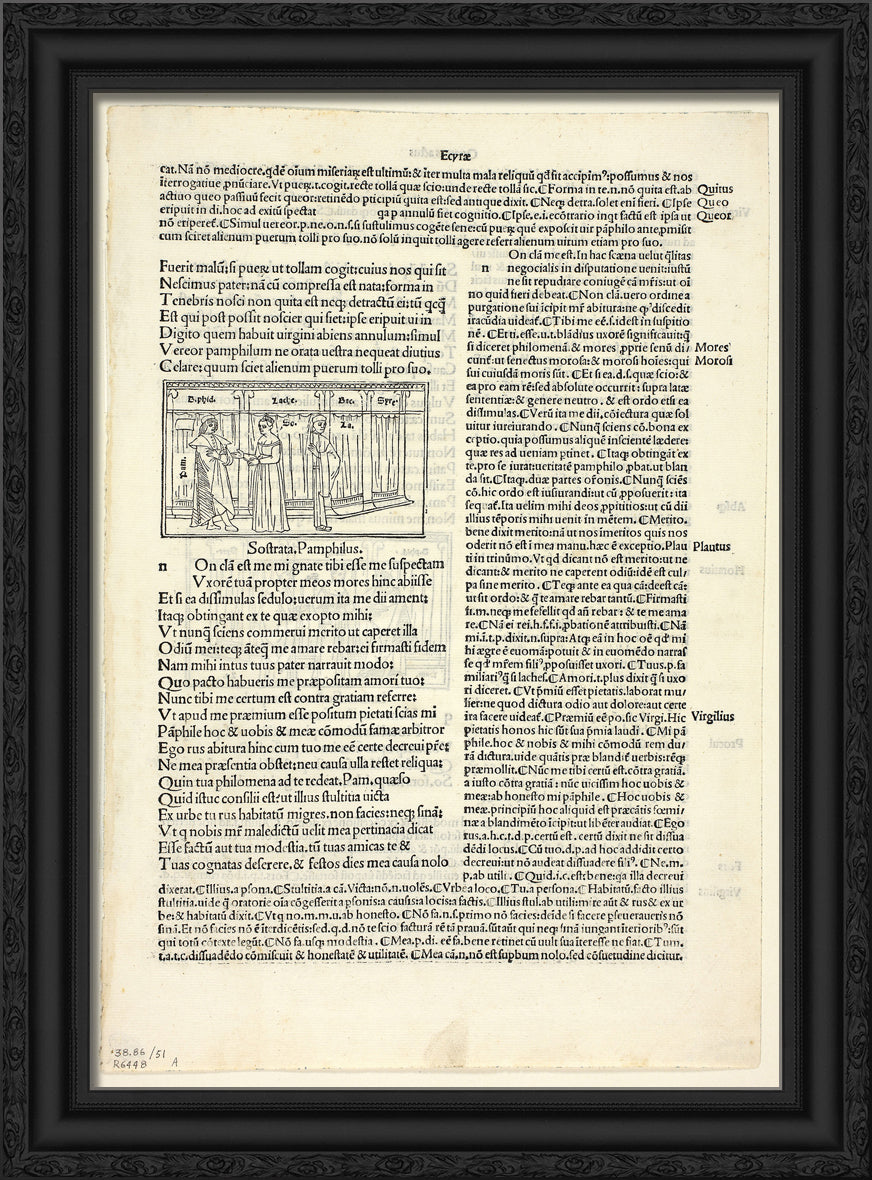 Ecyræ
cat. Nā nō mediocre. qdē oīum miseriaꝝ est ultimū: & īter multa mala reliquū qđ sit accipimꝰ: possumus & nos
īterrogatiue ꝓnūciare. Vt pueꝝ .t. cogit. recte tollā quæ scio: unde recte tollā sic. ℂForma in te. n. nō quita est. ab
Quitus
actiuo queo passiuū fecit queor: retinēdo pticipiū quita est: sed antique dixit. ℂNeqꝫ detra. solet eni fieri. ℂIpse
Queo
eripuit in di. hoc ad exitū spectat ga p annulū fiet cognitio. ℂIpse. e. i. ecōtrario inqt factū est ipsa ut
Queor
nō eriperet. ℂSimul uereor. p. ne. o. n. s. ū sustulimus cogēte sene: cū pueꝝ quē exposcit uir pāphilo ante, pmisit
cum sciret alienum puerum tolli pro suo. nō solū inquit tolli agere refert alienum uirum etiam pro suo.
Fuerit malū: si pueꝝ ut tollam cogit: cuius nos qui sit
Nescimus pater: nā cū compressa est nata: forma in
Tenebris nosci non quita est neqꝫ detractū ei: tū qcꝗ
Est qui post possit noscier qui siet: ipse eripuit ui in
Digito quem habuit uirgini abiens annulum: simul
Vereor pamphilum ne orata uestra nequeat diutius
Celare: quum sciet alienum puerum tolli pro suo.
Pam.
So.
La.
Sostrata. Pamphilus.
n On clā est me mi gnate tibi esse me suspectam
Vxorē tuā propter meos mores hinc abiisse
Et si ea dissimulas sedulo: uerum ita me dii ament:
Itaqꝫ obtingant ex te quæ exopto mihi:
Vt nunꝗ sciens commerui merito ut caperet illa
Odiū mei: teqꝫ āteꝗ me amare rebar: ei firmasti fidem
Nam mihi intus tuus pater narrauit modo:
Quo pacto habueris me præpositam amori tuo:
Nunc tibi me certum est contra gratiam referre:
Vt apud me præmium esse positum pietati scias mi
Pāphile hoc & uobis & meæ cōmodū famæ arbitror
Ego rus abitura hinc cum tuo me eē certe decreui pr̄e:
Ne mea præsentia obstet: neu causa ulla restet reliqua:
Quin tua philomena ad te redeat. Pam. quæso
Quid istuc consilii est: ut illius stultitia uicta
Ex urbe tu rus habitatū migres. non facies: neqꝫ sinā:
Vt q nobis mr̄ maledictū uelit mea pertinacia dicat
Esse factū aut tua modestia. tū tuas amicas te &
Tuas cognatas deserere. & festos dies mea causa nolo
On clā me est. In hac scæna uelut ꝗlitas
n negocialis in disputatione uenit: iustū
ne sit repudiare coniugē cā mr̄is: ut oī
no quid fieri debeat. ℂNon clā. uero ordine a
purgatione sui icipit mr̄ abitura: ne qꝰ discedit
iracūdia uideat̄. ℂTibi me eē. s. idest in suspitio
nē. ℂEt ti. esse. u. t. blādius uxorē significauit: ꝗ
si diceret philomenā. & mores ꝓprie senū di/
Mores
cunt̄. ut senectus morosa: & morosi hoīes: qui
Morosi
sui cuiusdā moris sūt. ℂEt si ea. d. s. quæ scio: &
ea pro eam rē: sed absolute occurrit: supra latæ
sententiæ: & genere neutro. & est ordo etsi ea
dissimulas. ℂVerū ita me dii, cōiectura quæ sol
uitur iureiurando. ℂNunꝗ sciens cō. bona ex
ceptio. quia possumus aliquē inscientē lædere:
quæ res ad ueniam ptinet. ℂItaqꝫ obtingāt ex
te. pro se iurat: ueritatē pamphilo ꝓbat. ut blan
da sit. ℂItaqꝫ. duæ partes ofonis. ℂNunꝗ sciēs
cō. hic ordo est iusiurandi: ut cū ꝓposuerit: ita
sequat̄. Ita uelim mihi deos ꝓpititios: ut cū dii
illius tēporis mihi uenit in mētem. ℂMerito.
bene dixit merito: nā ut nos imeritos quis nos
oderit nō est i mea manu. hæc ē exceptio. Plau
Plautus
ti in trinūmo. Vt qd dicant nō est merito: ut ne
dicant: & merito ne caperent odiū: idē est cul/
pa sine merito. ℂTeqꝫ ante ea qua cā: deest cā:
ut sit ordo: & ꝗ te amare rebar tantū. ℂFirmasti
fi. m. neqꝫ me fefellit qd añ rebar: & te me ama
re. ℂNā ei rei. h. f. f. i. ꝓbationē attribuisti. ℂNā
mi. ī. t. p. dixit. n. supra: Atqꝫ eā in hoc oē qđ mi
hi ægre ē euomā: potuit & in euomēdo narras
se qđ mr̄em filiꝰ, pposuisset uxori. ℂTuus. p. fa
miliariꝰꝗ si laches. ℂAmori. t. plus dixit ꝗ si uxo
ri diceret. ℂVt p̄miū esset pietatis. laborat mu/
lier: ne quod dictura odio aut dolore: aut certe
ira facere uideat̄. ℂPræmiū eē po. sic Virgi. Hic
Virgilius
pietatis honos hic sūt sua p̄mia laudi. ℂMi pā
phile. hoc & nobis & mihi cōmodū rem du/
rā dictura. uide quātis præ blandit̄ uerbis: rēqꝫ
præmollit. ℂNūc me tibi certū est. cōtra gratiā.
a iusto cōtra gratiā: nūc uicissim hoc uobis &
meæ: ab honesto mi pāphile. ℂHoc uobis &
meæ. principiū hoc aliquid est præcatiīs fœmi/
næ a blandimēto īcipit: ut libēter audiat. ℂEgo
rus. a. h. c. t. d. p. certū est. certū dixit ne sit dissua
dēdi locus. ℂCū tuo. d. p. ad hoc addidit certo
decreui: ut nō audeat dissuadere filiꝰ. ℂNe. m.
p. ab utili. ℂQuid. i. c. est: bene: ga illa decreui
dixerat. ℂIllius. a psona. ℂStultitia. a cā. Victa: nō. n. uolēs. ℂVrbe a loco. ℂTu. a persona. ℂHabitatū. facto illius
stultitia. uide ꝗ oratorie oīa cōgesserit a psonis: a causis: a locis: a factis. ℂIllius stul. ab utili: mirē aūt & rus & ex ur
be: & habitatū dixit. ℂVt q no. m. m. u. ab honesto. ℂNō fa. n. s. primo nō facies: deide si facere pseueraueris nō
sinā. Et nō facies nō ē īterdicētis: sed. q. d. nō te scio facturā rē tā prauā. sūt aūt qui neqꝫ sinā iungant īterioribꝰ: sūt
qui totū cōtexte legūt. ℂNō fa. usqꝫ modestia. ℂMea. p. di. eē fa. bene retinet cū uult sua īteresse ne fiat. ℂTum.
t. a. t. c. dissuadēdo cōmiscuit & honestatē & utilitatē. ℂMea cā. n. nō est supbum nolo. sed cōsuetudine dicitur.
38.86/51
R6448 A